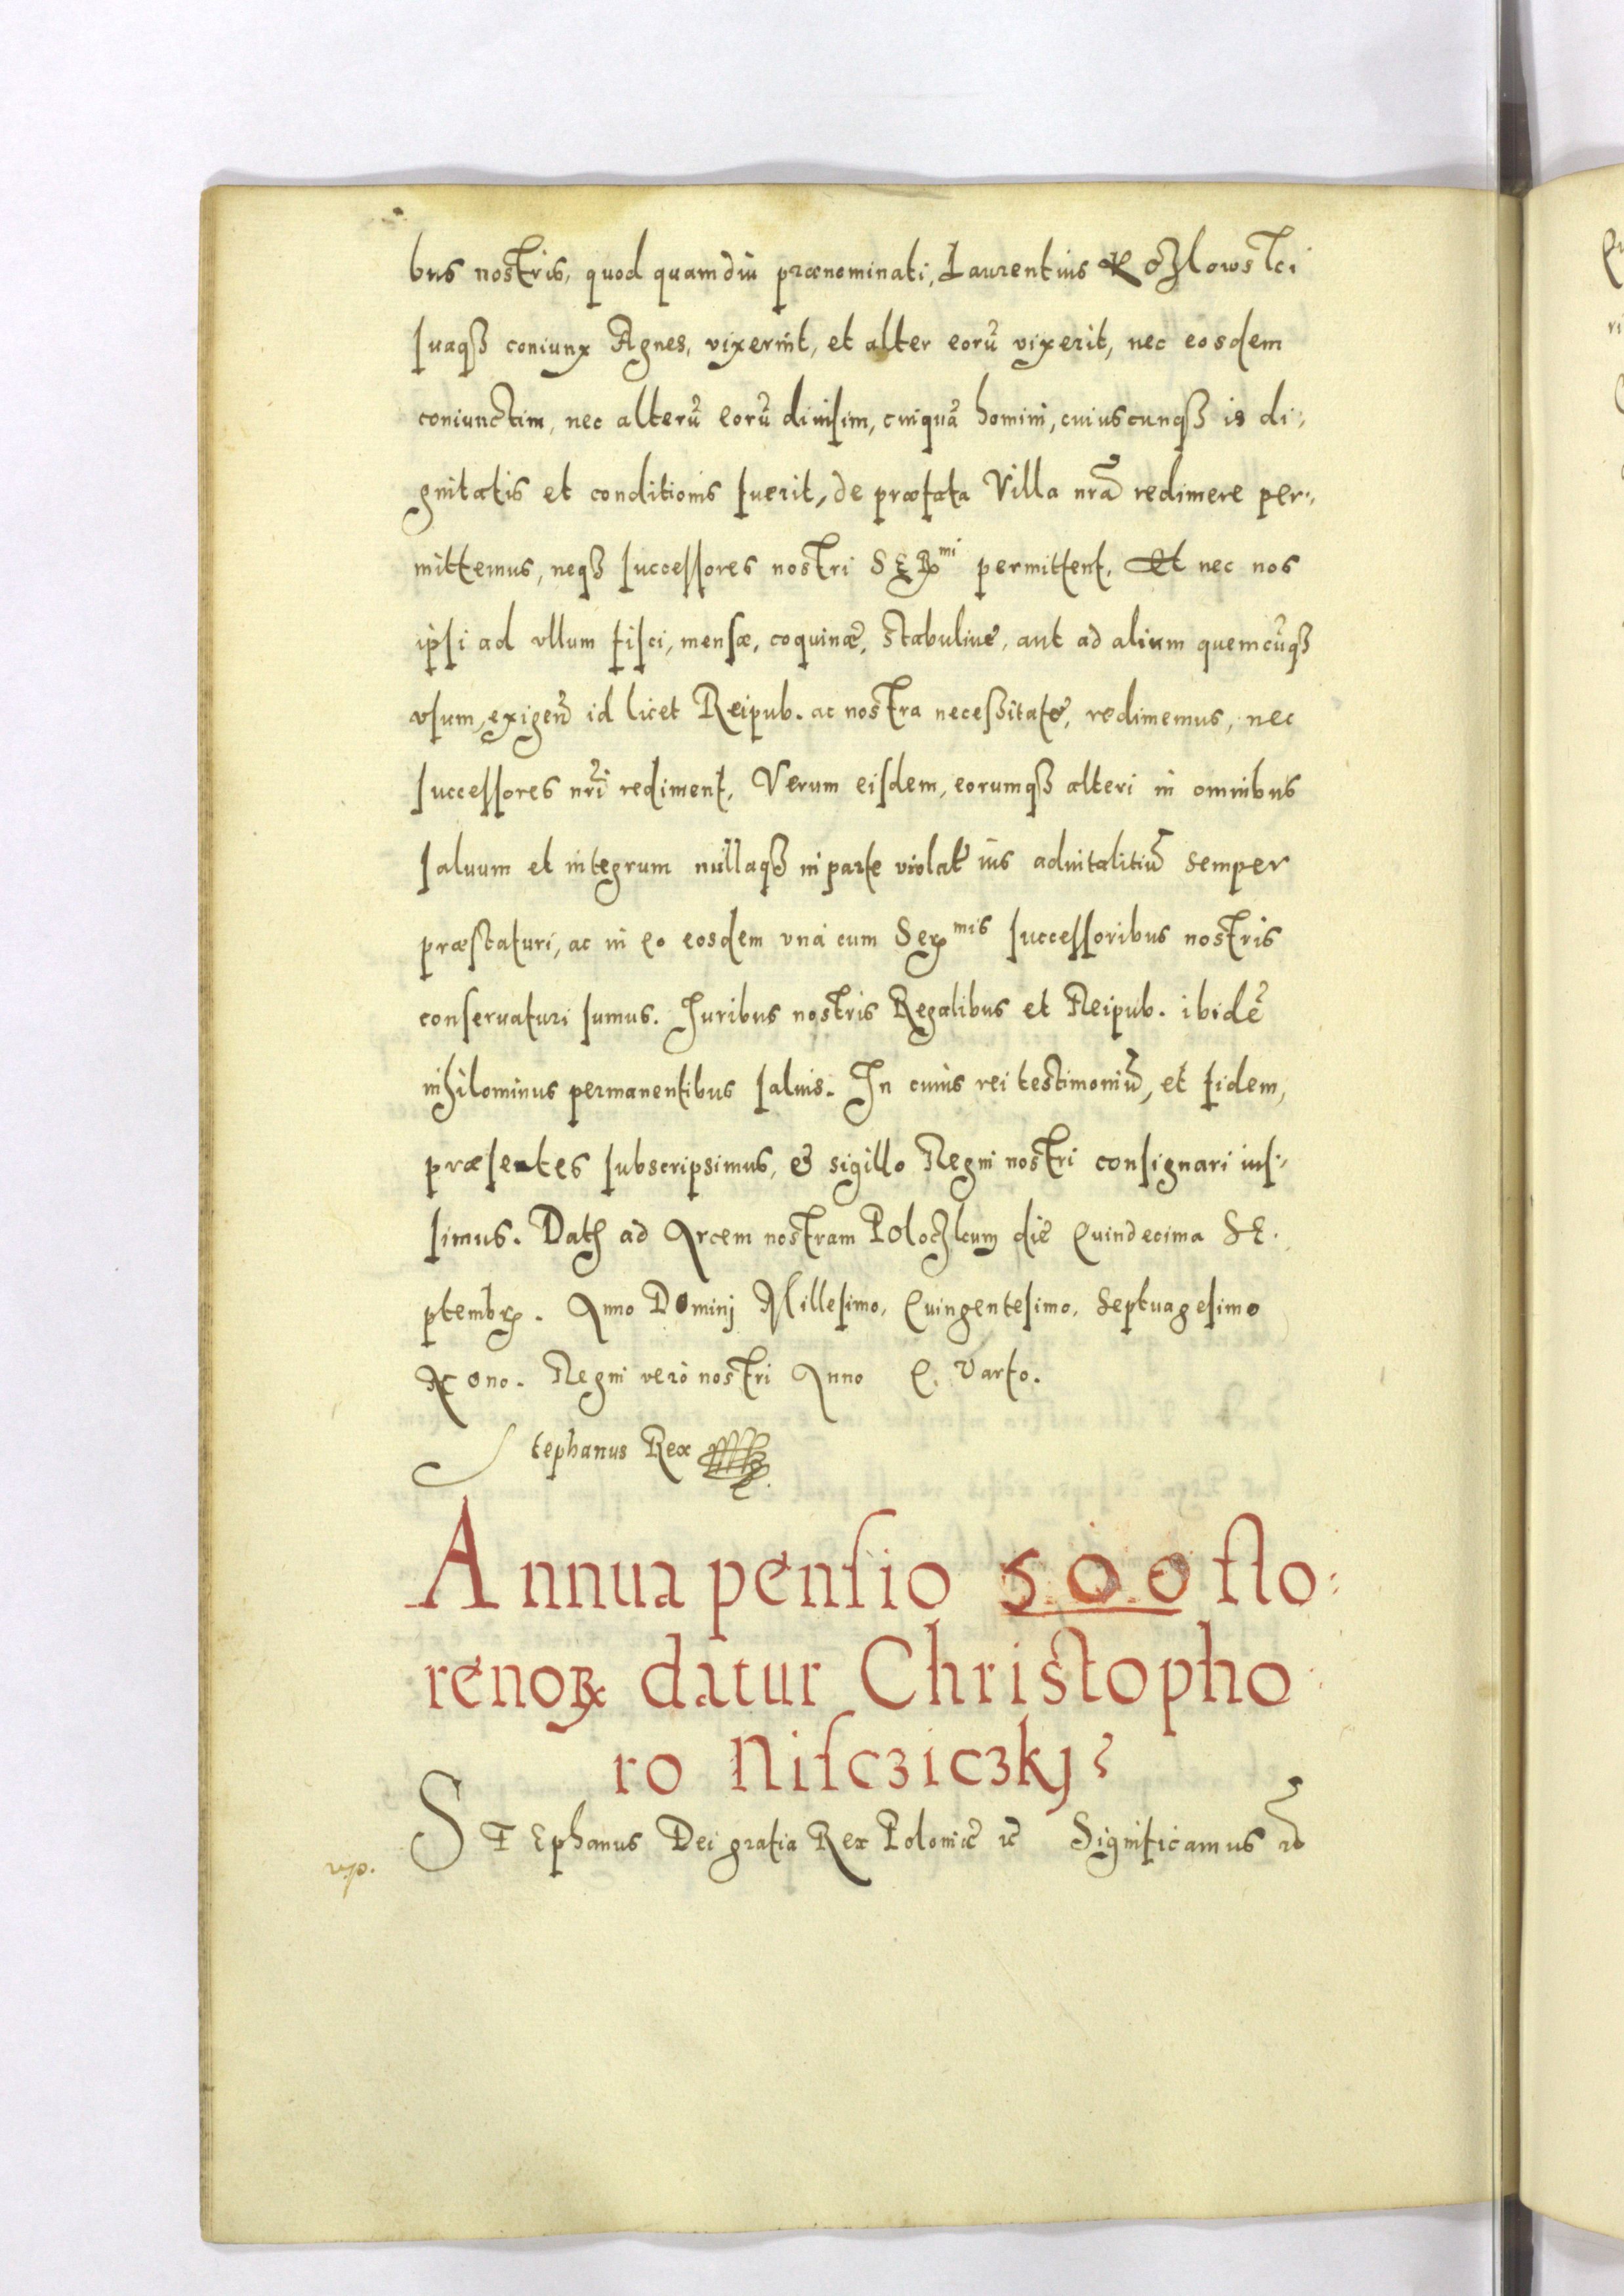 bus nostris, quod quamdiu prænominati, Laurentius Kozlowski
suaqȝ coniunx Agnes, vixerint, et alter eorū vixerit, nec eosdem
coniunctim, nec alterū eorū diuisim, cuiquā homini, cuiuscunqȝ is di:
gnitatis et conditionis fuerit, de præfata Villa nrā redimere per:
mittemus, neqȝ successores nostri SERmi permittent. Et nec nos
ipsi ad vllum fisci, mensæ, coquinæ, stabuliue, aut ad alium quemcūqȝ
vsum, exigeñ id licet Reipub. ac nostra necessitate, redimemus, nec
successores nrī rediment, Verum eisdem, eorumqȝ alteri in omnibus
saluum et integrum nullaqȝ in parte violat ius aduitalitiū semper
præstaturi, ac in eo eosdem vná cum Sermis successoribus nostris
conseruaturi sumus. Juribus nostris Regalibus et Reipub. ibidē
nihilominus permanentibus saluis. In cuius rei testimoniū, et fidem,
præsentes subscripsimus, & sigillo Regni nostri consignari ius:
simus. Datȝ ad Arcem nostram Poloczkum die Quindecima SE.
ptembr. Anno Dominj Millesimo, Quingentesimo, Septuagesimo
Nono. Regni vero nostri Anno Quarto.
Stephanus Rex
Annua pensio 500 flo:
renoꝝ datur Christopho
ro Nisczickj
STEphanus Dei gratia Rex Poloniæ etc Significamus etc